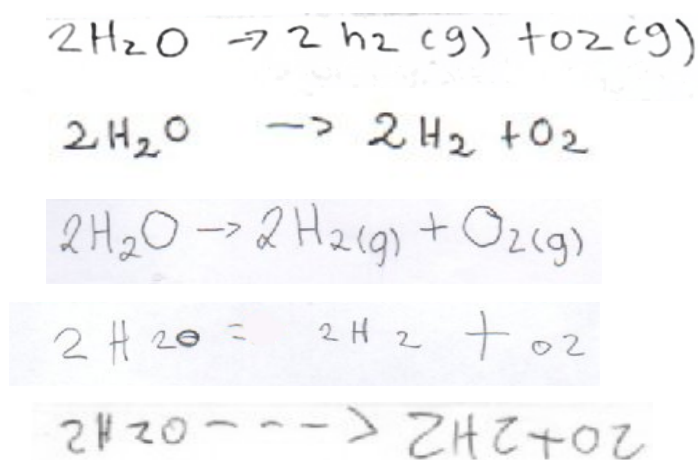 2H₂O → 2 h2 (g) + o2 (g)
2H₂O → 2H₂ + O₂
2H₂O → 2H₂(g) + O₂(g)
2 H 20 = 2 H 2 + 02
2H20 - - - > 2H2+02